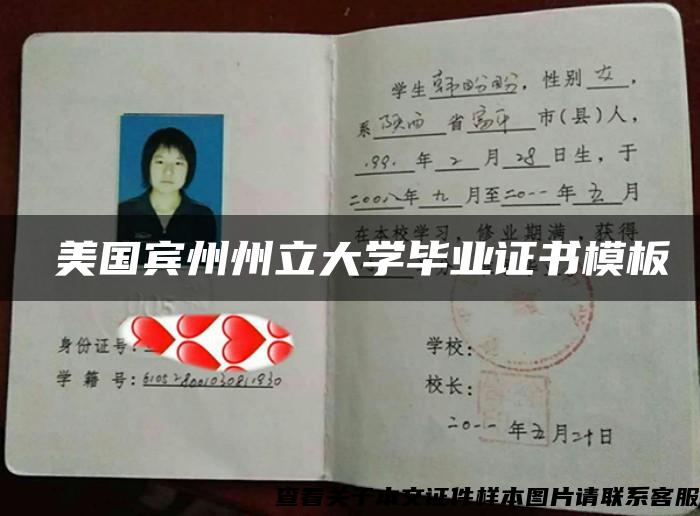 学生韩盼盼，性别女，
系陕西省富平市(县)人，
1991年2月28日生，于
二00八年九月至二0一一年五月
在本校学习，修业期满，获得
美国宾州州立大学毕业证书模板
身份证号：
学籍号：
学校：
校长：
二0一一年五月二十日
查看关于本文证件样本图片请联系客服